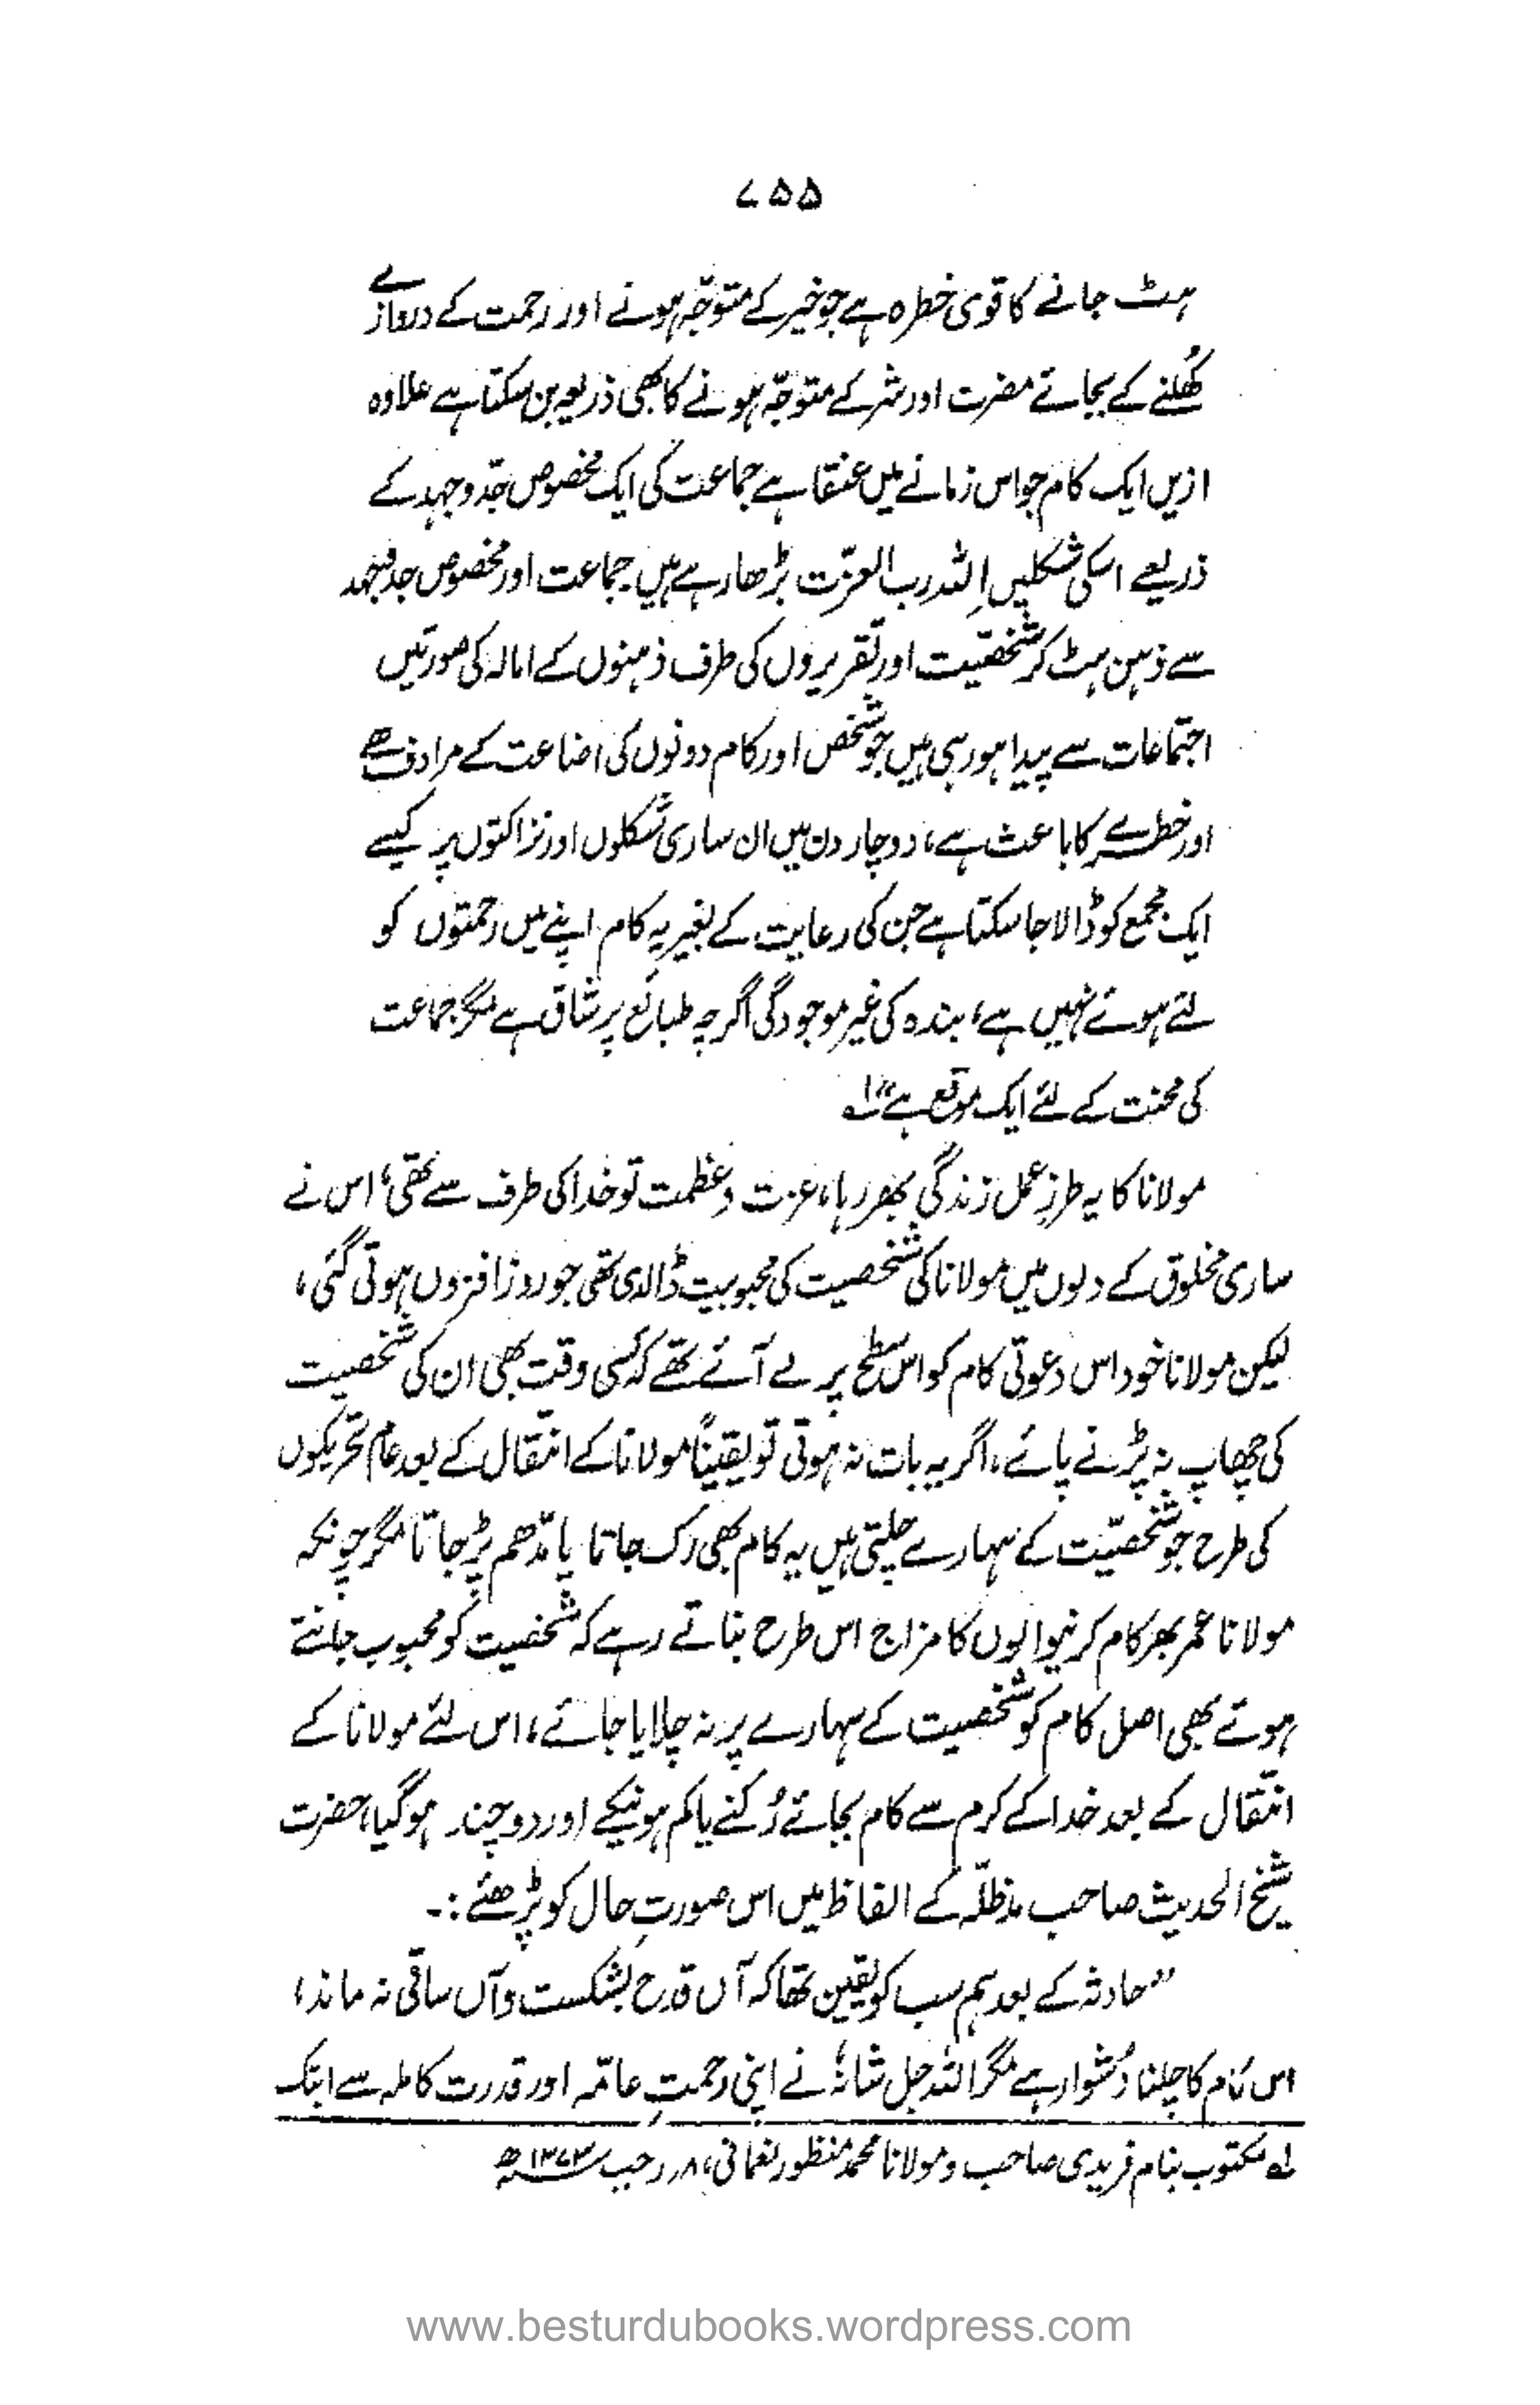 ۷۵۵
ہٹ جانے کا قوی خطرہ ہے جو خیر کے متوجّہ ہونے اور رحمت کے دروازے
کُھلنے کے بجائے مضرت اور شر کے متوجّہ ہونے کا بھی ذریعہ بن سکتا ہے علاوہ
ازیں ایک کام جو اس زمانے میں عنقا ہے جماعت کی ایک مخصوص جدّ وجہد کے
ذریعے اسکی شکلیں اللہ رب العزّت بڑھا رہے ہیں جماعت اور مخصوص جدوجہد
سے ذہن ہٹ کر شخصیّت اور تقریروں کی طرف ذہنوں کے امالہ کی صورتیں
اجتماعات سے پیدا ہو رہی ہیں جو شخص اور کام دونوں کی اضاعت کے مرادف ہے
اور خطرے کا باعث ہے، دو چار دن میں ان ساری شکلوں اور نزاکتوں پر کیسے
ایک مجمع کو ڈالا جا سکتا ہے جن کی رعایت کے بغیر یہ کام اپنے میں رحمتوں کو
لئے ہوئے نہیں ہے، بندہ کی غیر موجودگی اگرچہ طبائع پر شاق ہے مگر جماعت
کی محنت کے لئے ایک موقع ہے" ۱؎
مولانا کا یہ طرزِ عمل زندگی بھر رہا، عزت وعظمت تو خدا کی طرف سے تھی، اس نے
ساری مخلوق کے دلوں میں مولانا کی شخصیت کی محبوبیت ڈالدی تھی جو روز افزوں ہوتی گئی،
لیکن مولانا خود اس دعوتی کام کو اس سطح پر لے آئے تھے کہ کسی وقت بھی ان کی شخصیت
کی چھاپ نہ پڑنے پائے، اگر یہ بات نہ ہوتی تو یقیناً مولانا کے انتقال کے بعد عام تحریکوں
کی طرح جو شخصیّت کے سہارے چلتی ہیں یہ کام بھی رک جاتا یا مدّھم پڑ جاتا مگر چونکہ
مولانا عمر بھر کام کرنیوالوں کا مزاج اس طرح بناتے رہے کہ شخصیت کو محبوب جانتے
ہوئے بھی اصل کام کو شخصیت کے سہارے پر نہ چلایا جائے، اس لئے مولانا کے
انتقال کے بعد خدا کے کرم سے کام بجائے رُکنے یا کم ہونیکے اور دوچند ہوگیا، حضرت
شیخ الحدیث صاحب مدظلّہ کے الفاظ میں اس صورتِ حال کو پڑھئے :۔
"حادثہ کے بعد ہم سب کو یقین تھا کہ آں قدح بشکست و آں ساقی نہ ماند،
اس کام کا چلنا دُشوار ہے مگر اللہ جل شانہٗ نے اپنی رحمتِ عامّہ اور قدرت کاملہ سے ابتک
۱؎ مکتوب بنام فریدی صاحب و مولانا محمد منظور نعمانی، ۸ رجب ۱۳۷۳ھ
www.besturdubooks.wordpress.com